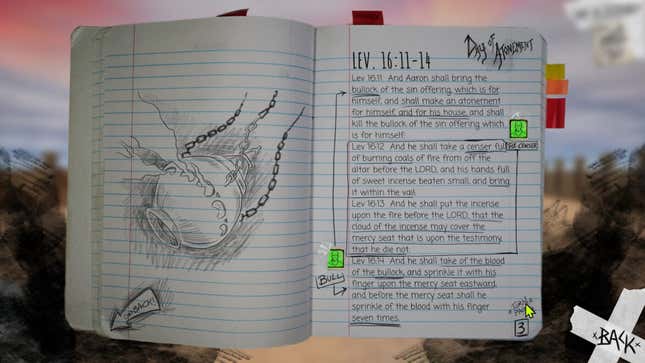 Day of
Atonement
LEV. 16:11-14
Lev 16:11 And Aaron shall bring the
bullock of the sin offering, which is for
himself, and shall make an atonement
for himself, and for his house, and shall
kill the bullock of the sin offering which
is for himself:
Lev 16:12 And he shall take a censer full
of burning coals of fire from off the
altar before the LORD, and his hands full
of sweet incense beaten small, and bring
it within the vail:
Lev 16:13 And he shall put the incense
upon the fire before the LORD, that the
cloud of the incense may cover the
mercy seat that is upon the testimony,
that he die not:
Lev 16:14 And he shall take of the blood
of the bullock, and sprinkle it with his
finger upon the mercy seat eastward;
and before the mercy seat shall he
sprinkle of the blood with his finger
seven times.
Bull
3
BACK